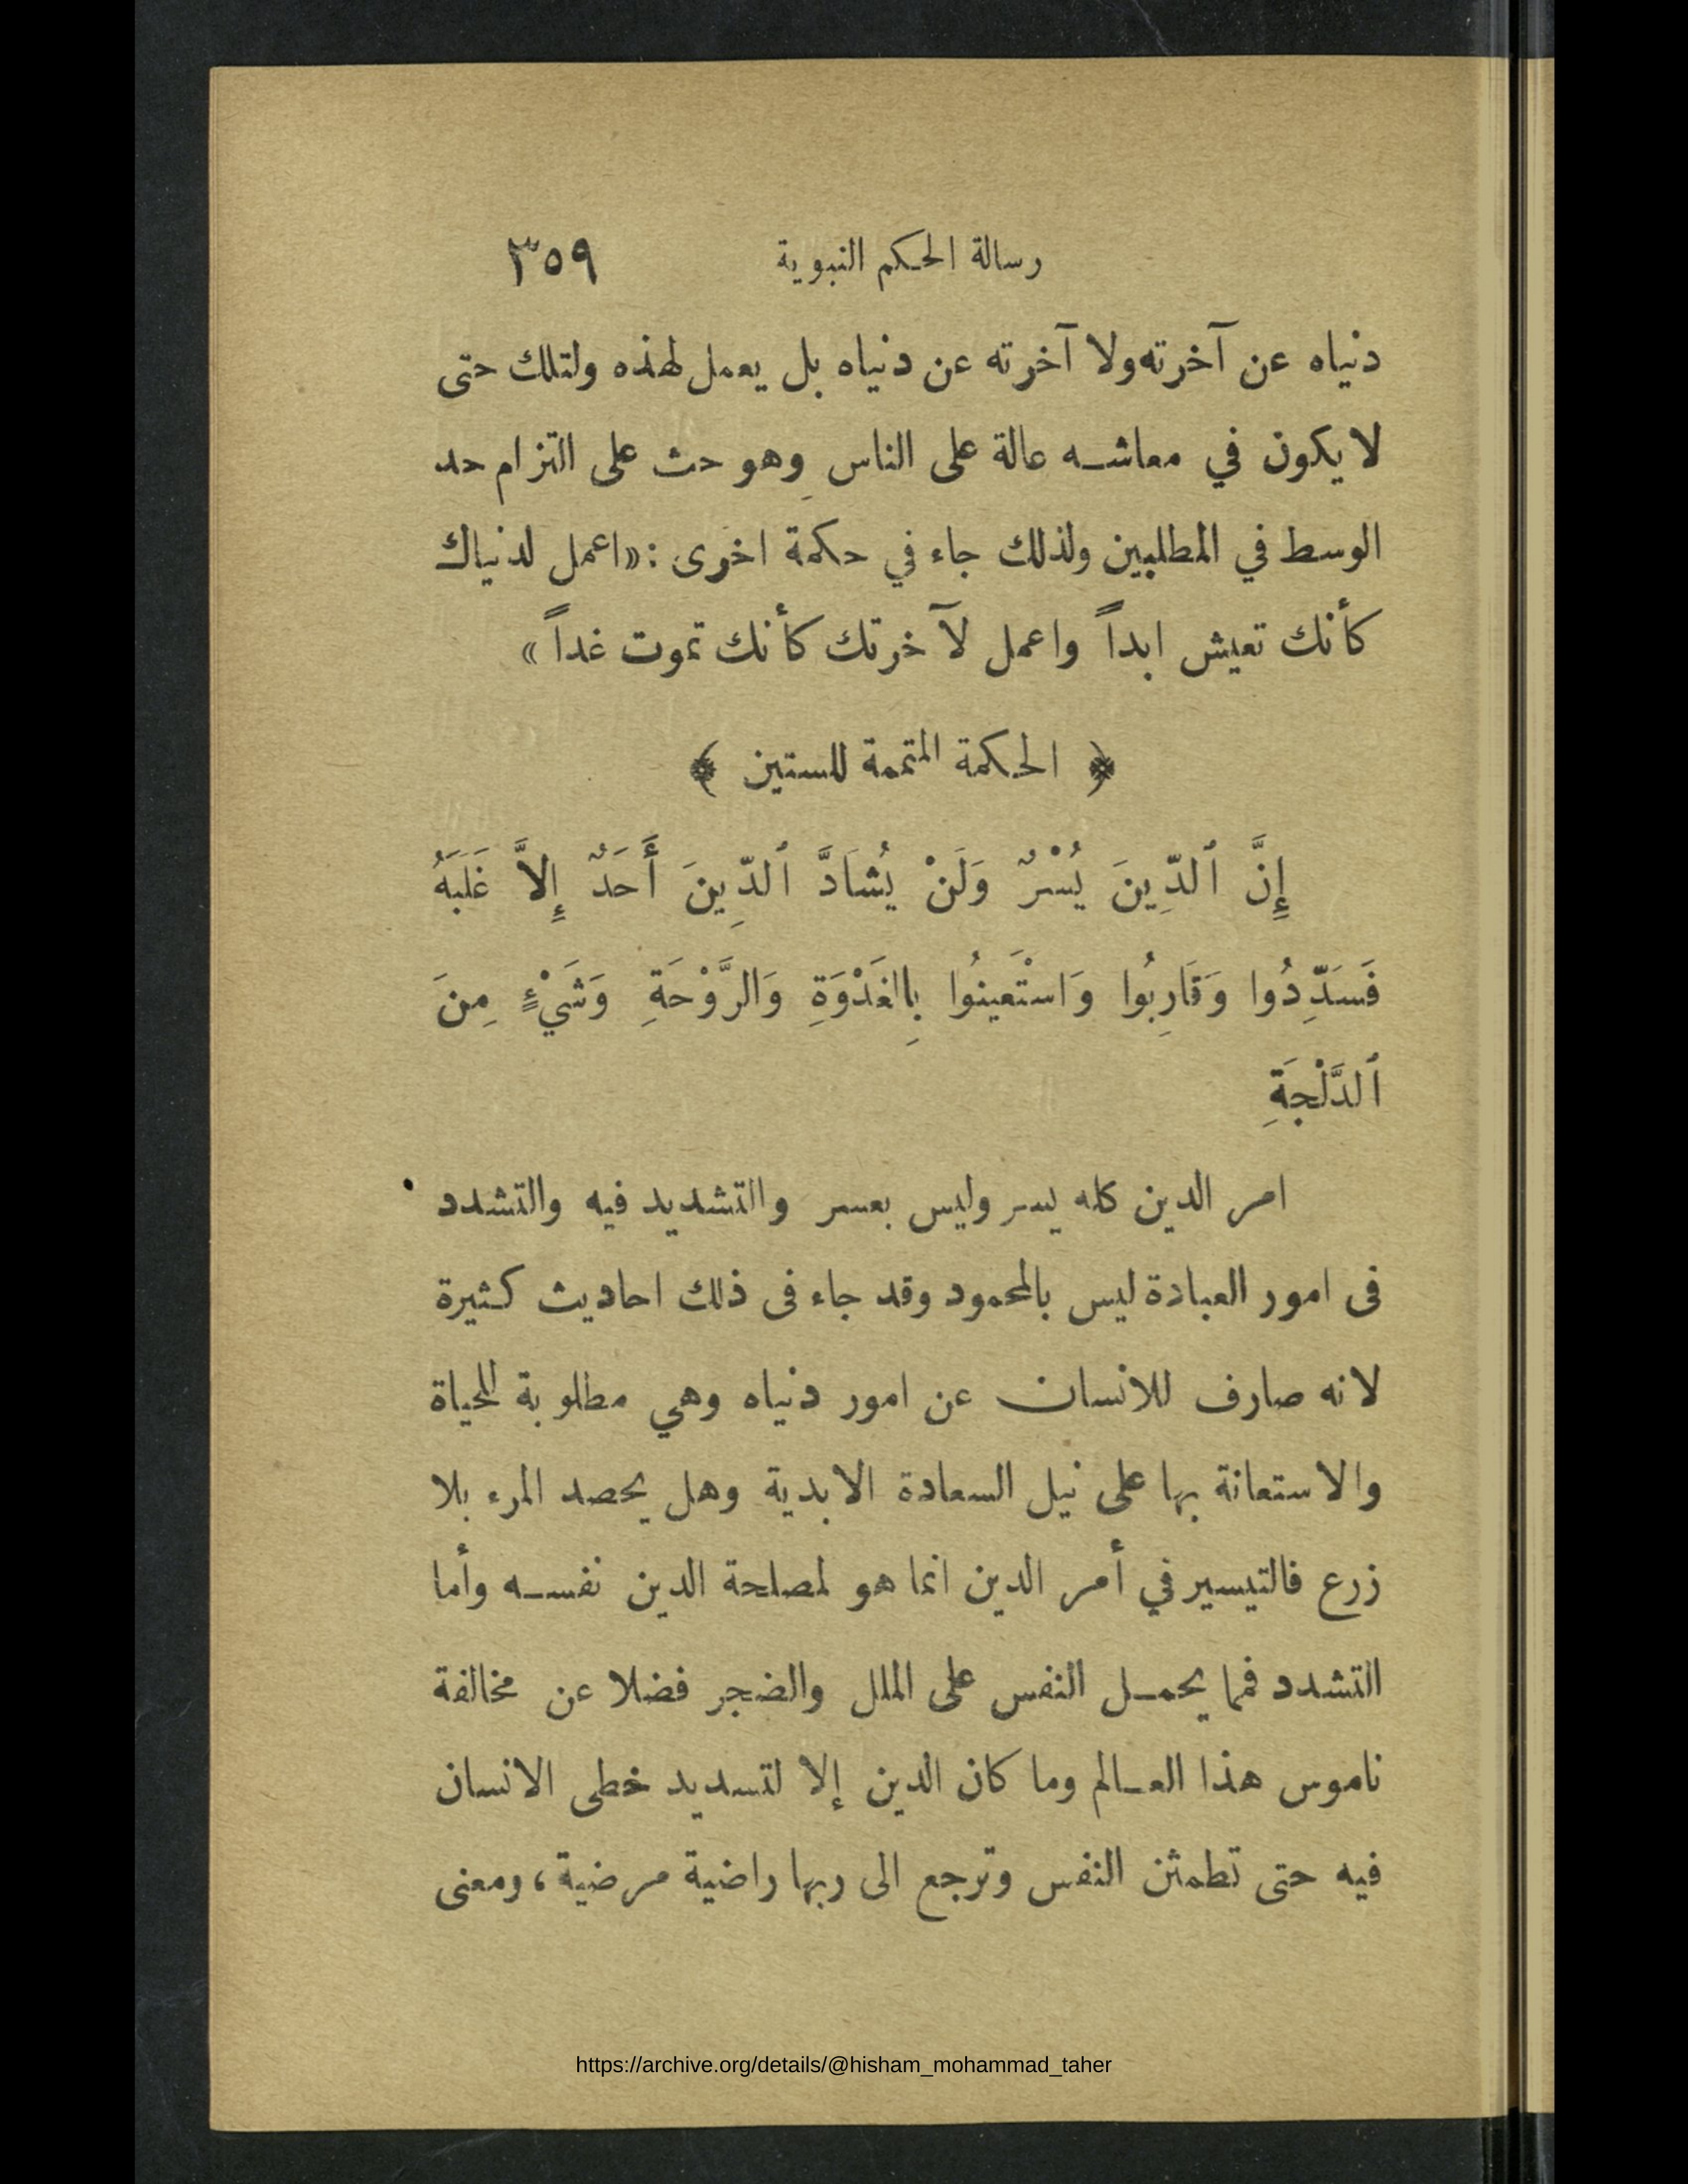 رسالة الحكم النبوية ٣٥٩
دنياه عن آخرته ولا آخرته عن دنياه بل يعمل لهذه ولتلك حتى
لا يكون في معاشه عالة على الناس وهو حث على التزام حد
الوسط في المطلبين ولذلك جاء في حكمة اخرى : «اعمل لدنياك
كأنك تعيش ابداً واعمل لآخرتك كأنك تموت غداً»
﴿ الحكمة المتممة للستين ﴾
إِنَّ ٱلدِّينَ يُسْرٌ وَلَنْ يُشَادَّ ٱلدِّينَ أَحَدٌ إِلاَّ غَلَبَهُ
فَسَدِّدُوا وَقَارِبُوا وَاسْتَعِينُوا بِالغَدْوَةِ وَالرَّوْحَةِ وَشَيْءٍ مِنَ
ٱلدَّلْجَةِ
امر الدين كله يسر وليس بعسر والتشديد فيه والتشدد
فى امور العبادة ليس بالمحمود وقد جاء فى ذلك احاديث كثيرة
لانه صارف للانسان عن امور دنياه وهي مطلوبة للحياة
والاستعانة بها على نيل السعادة الابدية وهل يحصد المرء بلا
زرع فالتيسير في أمر الدين انما هو لمصلحة الدين نفسه وأما
التشدد فمما يحمل النفس على الملل والضجر فضلا عن مخالفة
ناموس هذا العالم وما كان الدين إلا لتسديد خطى الانسان
فيه حتى تطمئن النفس وترجع الى ربها راضية مرضية ، ومعنى
https://archive.org/details/@hisham_mohammad_taher